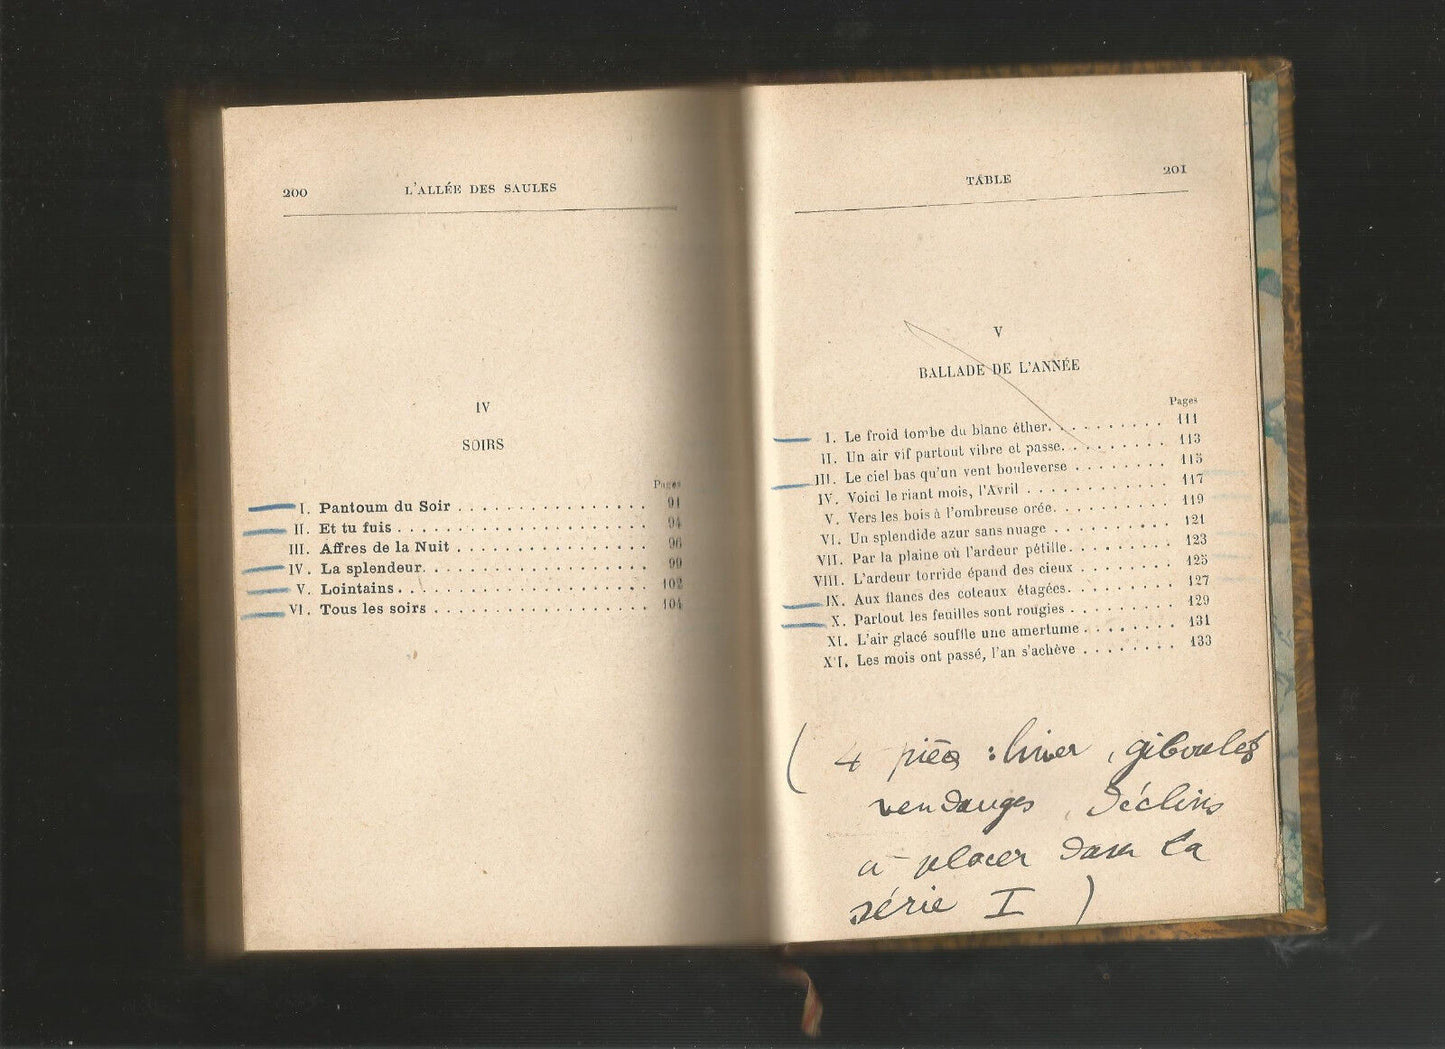 200 L'ALLÉE DES SAULES
IV
SOIRS
Pages
I. Pantoum du Soir . . . . . . . . . . . . . . . . 91
II. Et tu fuis . . . . . . . . . . . . . . . . . . . . 94
III. Affres de la Nuit . . . . . . . . . . . . . . . . 96
IV. La splendeur. . . . . . . . . . . . . . . . . . 99
V. Lointains . . . . . . . . . . . . . . . . . . . . 102
VI. Tous les soirs . . . . . . . . . . . . . . . . . 104
TABLE 201
V
BALLADE DE L'ANNÉE
Pages
I. Le froid tombe du blanc éther. . . . . . . . . . 111
II. Un air vif partout vibre et passe. . . . . . . . . 113
III. Le ciel bas qu'un vent bouleverse . . . . . . . . 115
IV. Voici le riant mois, l'Avril . . . . . . . . . . . . 117
V. Vers les bois à l'ombreuse orée. . . . . . . . . . 119
VI. Un splendide azur sans nuage . . . . . . . . . . 121
VII. Par la plaine où l'ardeur pétille. . . . . . . . . 123
VIII. L'ardeur torride épand des cieux . . . . . . . . 125
IX. Aux flancs des coteaux étagées. . . . . . . . . 127
X. Partout les feuilles sont rougies . . . . . . . . 129
XI. L'air glacé souffle une amertume . . . . . . . . 131
XII. Les mois ont passé, l'an s'achève . . . . . . . . 133
( 4 pièces : hiver, giboulées
vendanges, Déclins
à placer dans la
série I )